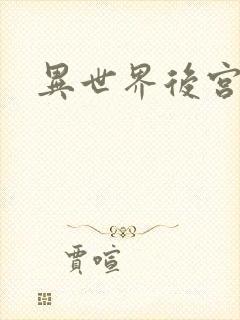 異世界後宮
賈喧